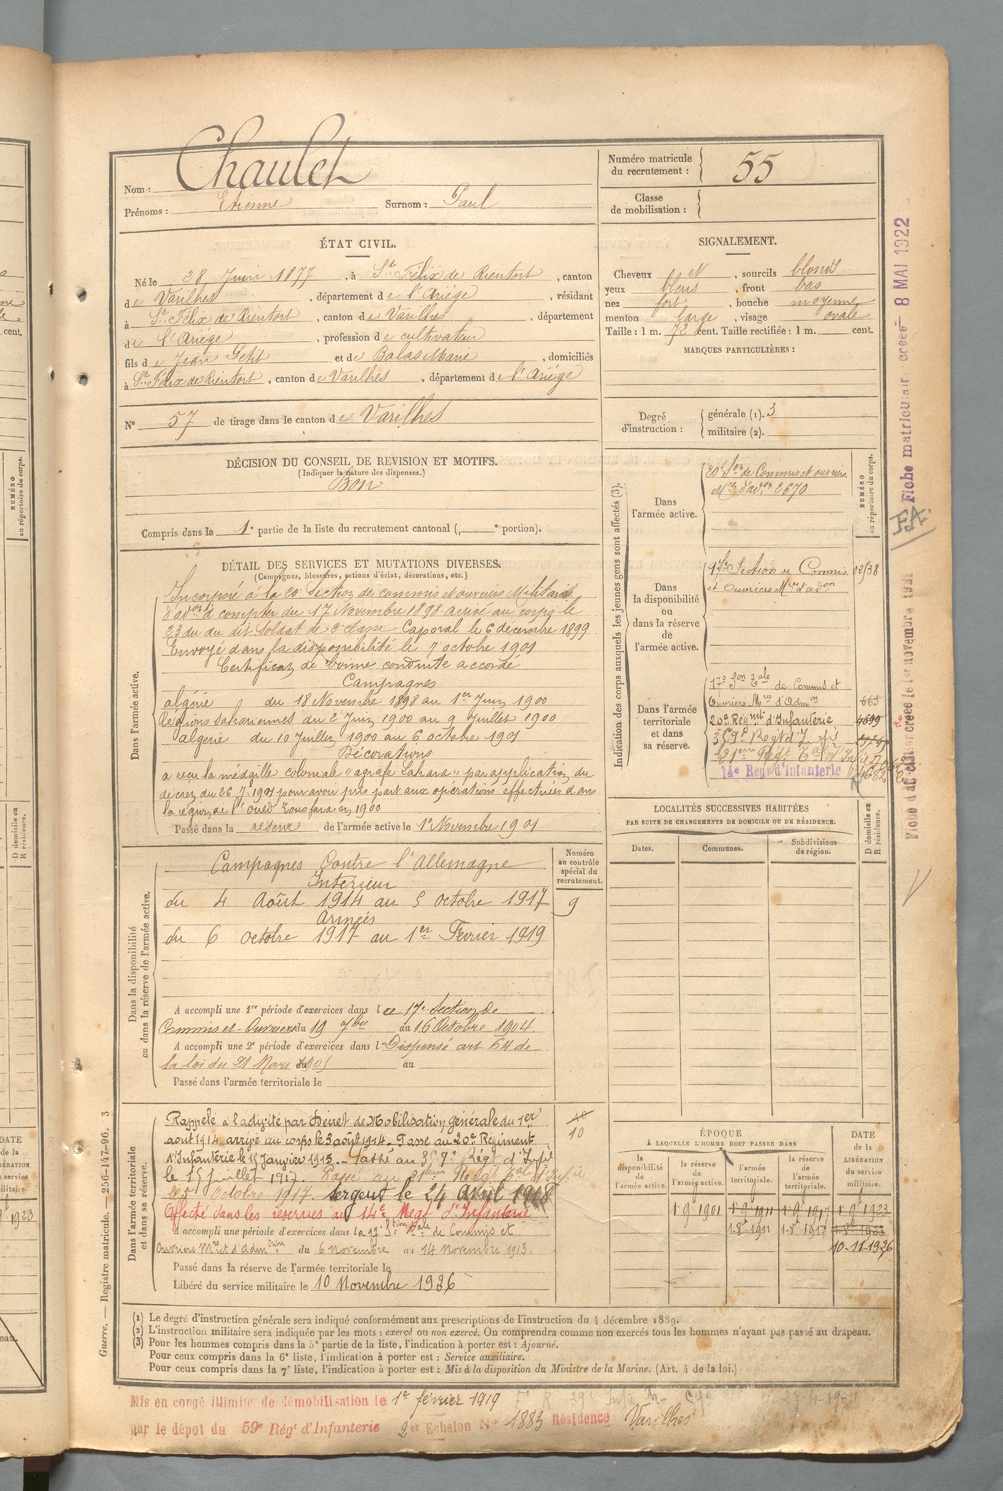 Nom : Chaulet
Prénoms : Etienne Surnom : Paul
Numéro matricule du recrutement : 55
Classe de mobilisation :
ÉTAT CIVIL.
Né le 28 Juin 1877, à St Félix de Rieutort, canton
de Varilhes, département de l'Ariège, résidant
à St Félix de Rieutort, canton de Varilhes, département
de l'Ariège, profession de cultivateur
fils de Jean Petit et de Balas Marie, domiciliés
à St Félix de Rieutort, canton de Varilhes, département de l'Ariège
N° 57 de tirage dans le canton de Varilhes
SIGNALEMENT.
Cheveux et, sourcils blonds
yeux bleus, front bas
nez fort, bouche moyenne
menton large, visage ovale
Taille : 1 m. 72 cent. Taille rectifiée : 1 m. cent.
MARQUES PARTICULIÈRES :
Degré d'instruction : générale (1). 3
militaire (2).
DÉCISION DU CONSEIL DE REVISION ET MOTIFS.
(Indiquer la nature des dispenses.)
Bon
Compris dans la 1e partie de la liste du recrutement cantonal ( e portion).
DÉTAIL DES SERVICES ET MUTATIONS DIVERSES.
(Campagnes, blessures, actions d'éclat, décorations, etc.)
Dans l'armée active.
Incorporé à la 20e Section de commis et ouvriers Militaires
d'adon à compter du 17 Novembre 1898 arrivé au corps le
23 du dit Soldat de 2e classe Caporal le 6 décembre 1899
Envoyé dans la disponibilité le 7 octobre 1901
Certificat de bonne conduite accordé
Campagnes
algérie du 18 Novembre 1898 au 1er Juin 1900
Régions sahariennes du 2 Juin 1900 au 9 Juillet 1900
algérie du 10 Juillet 1900 au 6 octobre 1901
Décorations
a reçu la médaille coloniale "agrafe Sahara" par application du
décret du 26 7 1901 pour avoir pris part aux opérations effectuées dans
la région de l'oued en 1900
Passé dans la réserve de l'armée active le 1er Novembre 1901
Indication des corps auxquels les jeunes gens sont affectés (3).
NUMÉRO au répertoire du corps.
Dans l'armée active.
20e Son de Commis et ouvriers
Mres d'adon 2670
Dans la disponibilité ou dans la réserve de l'armée active.
17e Section de Commis
et Ouvriers Mres d'adon
Dans l'armée territoriale et dans sa réserve.
17e Son Tale de Commis et
Ouvriers Mres d'Admon
20e Régmt d'Infanterie
14e Regt d'Infanterie
LOCALITÉS SUCCESSIVES HABITÉES
PAR SUITE DE CHANGEMENTS DE DOMICILE OU DE RÉSIDENCE.
Dates. Communes. Subdivisions de région. D domicile ou R résidence.
Dans la disponibilité ou dans la réserve de l'armée active.
Numéro au contrôle spécial du recrutement.
9
Campagnes Contre l'Allemagne
Intérieur
du 4 Août 1914 au 5 octobre 1917
Armées
du 6 octobre 1917 au 1er Février 1919
A accompli une 1re période d'exercices dans la 17e Section de
Commis et Ouvriers du 19 7bre au 16 Octobre 1904.
A accompli une 2e période d'exercices dans l Dispensé art 64 de
la loi du 21 Mars 1905 au
Passé dans l'armée territoriale le
Dans l'armée territoriale et dans sa réserve.
Rappelé à l'activité par Décret de Mobilisation générale du 1er
août 1914, arrivé au corps le 3 août 1914. Passé au 20e Régiment
d'Infanterie le 15 Janvier 1915. Passé au 359e Régt d'Infie
le 15 Juillet 1917.
Octobre 1917. Sergent le 24 avril 1918
Affecté dans les réserves au 14e Regt d'Infanterie
A accompli une période d'exercices dans la 17e Son Tale de Commis et
Ouvriers Mres et d'Admtion du 6 novembre au 14 Novembre 1913.
Passé dans la réserve de l'armée territoriale le
Libéré du service militaire le 10 Novembre 1926
10
ÉPOQUE
À LAQUELLE L'HOMME DOIT PASSER DANS
la disponibilité de l'armée active. la réserve de l'armée active. l'armée territoriale. la réserve de l'armée territoriale. DATE de la LIBÉRATION du service militaire.
1 9e 1901 1 9e 1911 1 9e 1917 1 9e 1923
1.8e 1911 1.8e 1917
10-11-1926
(1) Le degré d'instruction générale sera indiqué conformément aux prescriptions de l'instruction du 4 décembre 1889.
(2) L'instruction militaire sera indiquée par les mots : exercé ou non exercé. On comprendra comme non exercés tous les hommes n'ayant pas passé au drapeau.
(3) Pour les hommes compris dans la 5e partie de la liste, l'indication à porter est : Ajourné.
Pour ceux compris dans la 6e liste, l'indication à porter est : Service auxiliaire.
Pour ceux compris dans la 7e liste, l'indication à porter est : Mis à la disposition du Ministre de la Marine. (Art. 4 de la loi.)
Mis en congé illimité de démobilisation le 1er février 1919
par le dépôt du 59e Rég' d'Infanterie 2er Echelon N° 1883 Résidence Varilhes
Guerre. — Registre matricule. 256-147-96. 3
Fiche matriculaire créée 8 MAI 1922